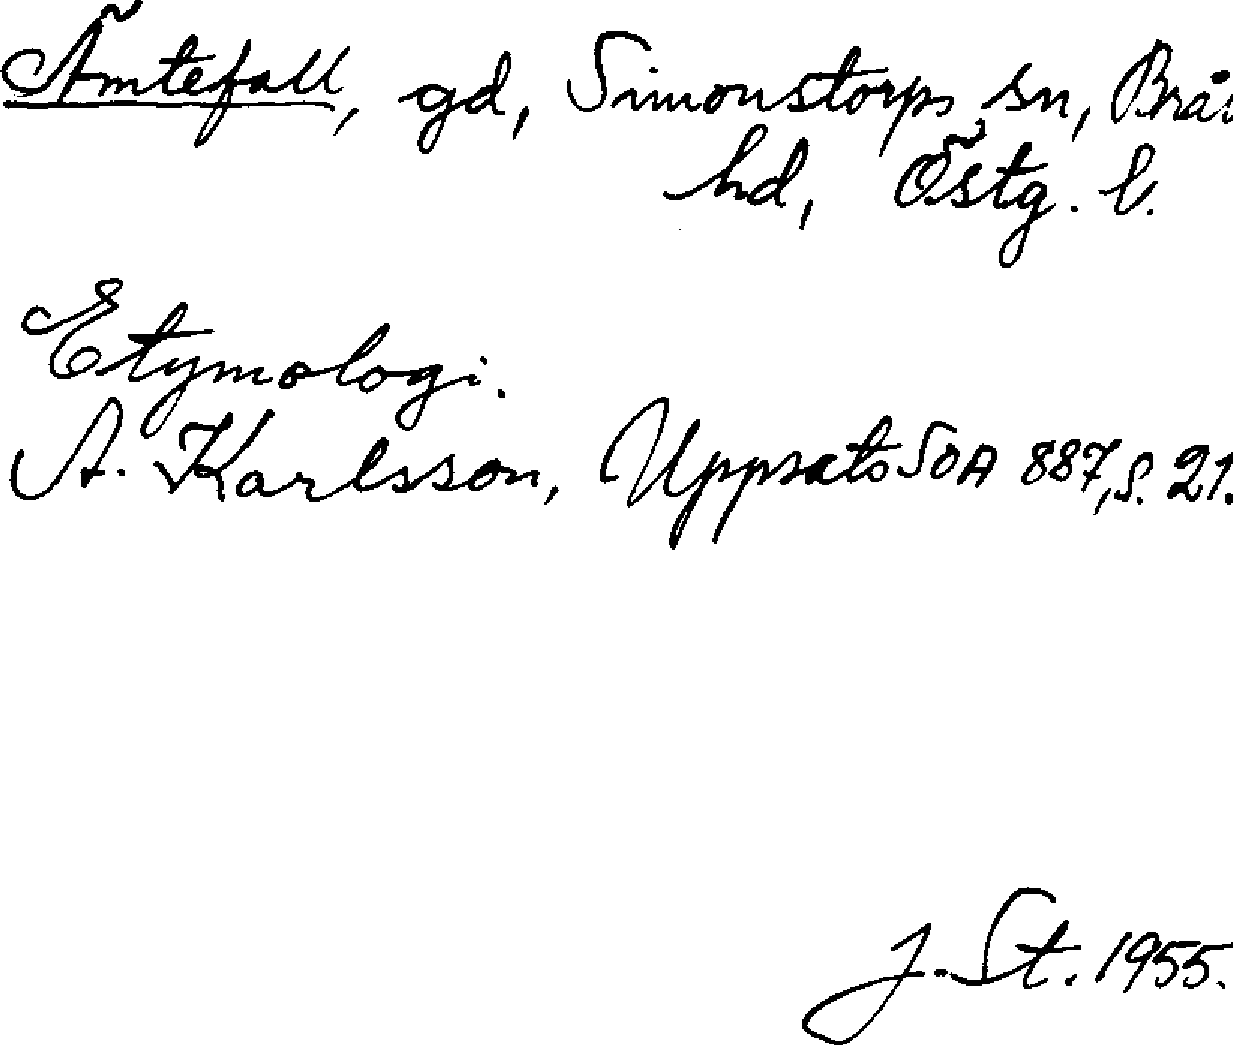 Ämtefall, gd, Simonstorps sn, Brå
hd, Östg. l.
Etymologi.
A. Karlsson, Uppsats SOA 887, s. 21.
J. St. 1955.